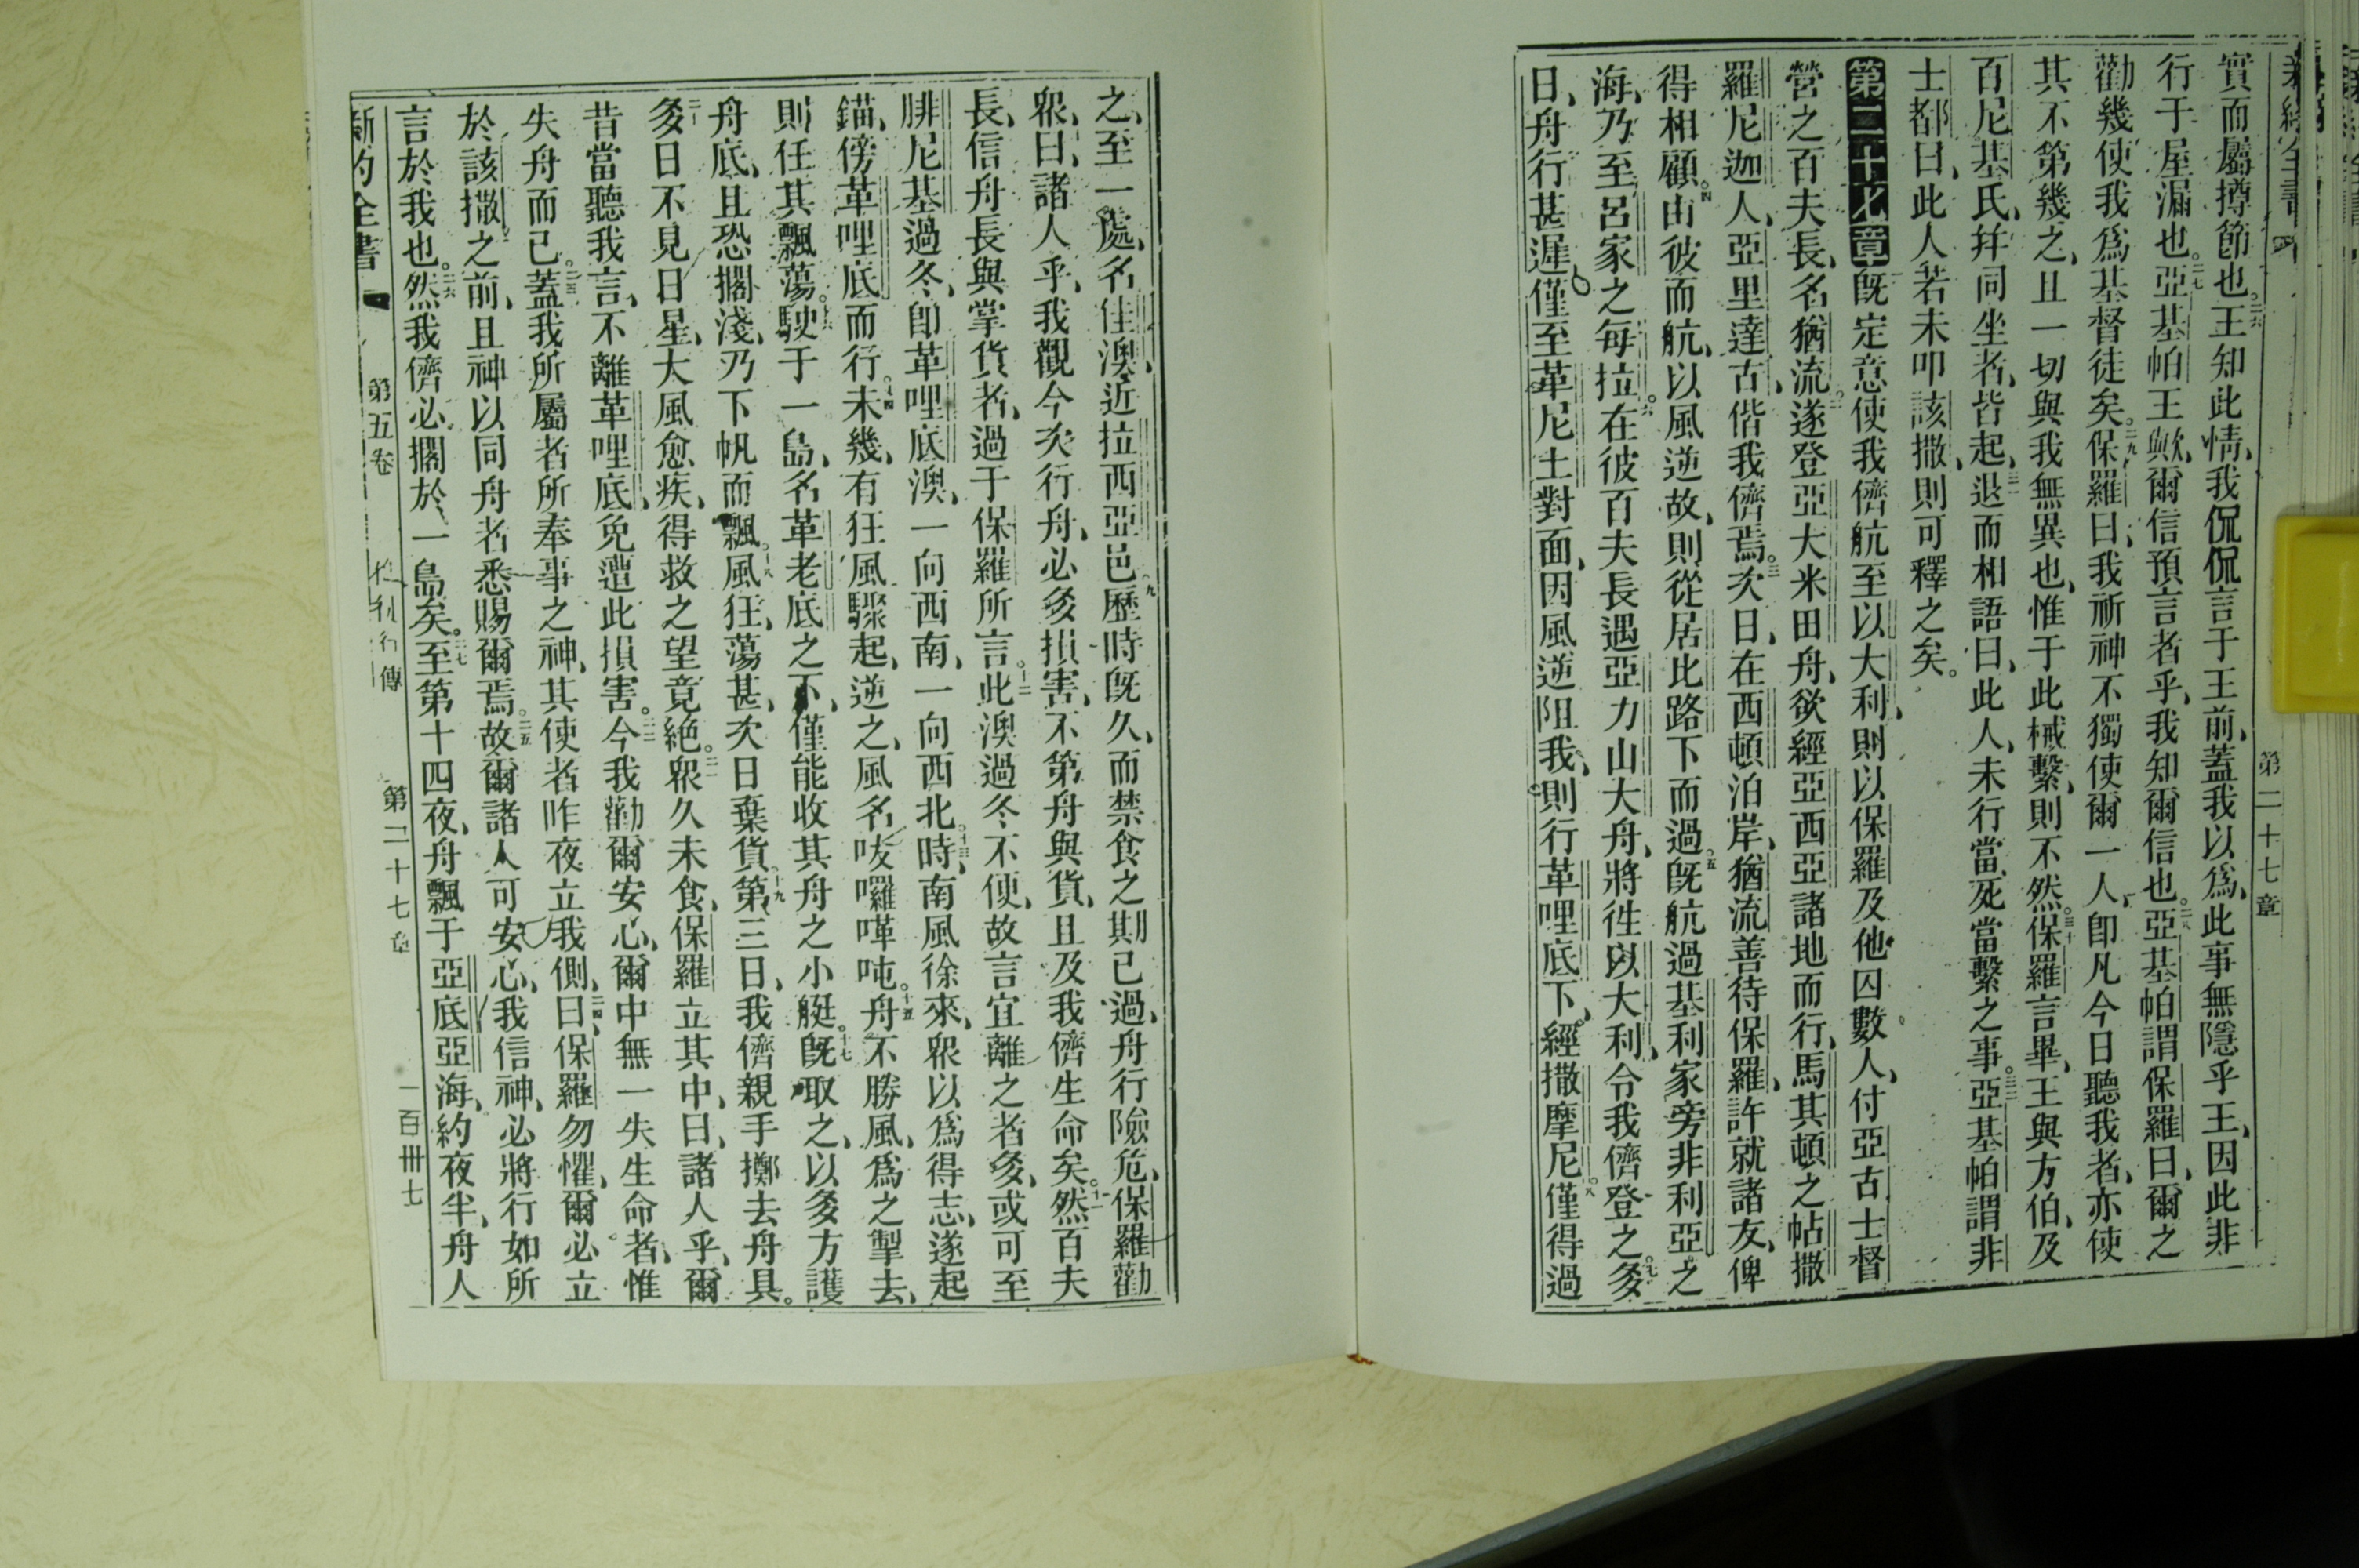 第二十七章
實而屬撙節也。二六王知此情、我侃侃言于王前、蓋我以爲、此事無隱乎王、因此非
行于屋漏也。二七亞基帕王歟、爾信預言者乎、我知爾信也。二八亞基帕謂保羅曰、爾之
勸幾使我爲基督徒矣。二九保羅曰、我祈神不獨使爾一人、卽凡今日聽我者、亦使
其不第幾之、且一切與我無異也、惟于此械繫、則不然。三十保羅言畢、王與方伯、及
百尼基氏、幷同坐者、皆起、三一退而相語曰、此人、未行當死當繫之事。三二亞基帕謂非
士都曰、此人若未叩該撒、則可釋之矣。
第二十七章既定意使我儕航至以大利、則以保羅及他囚數人、付亞古士督
營之百夫長、名猶流。二遂登亞大米田舟、欲經亞西亞諸地而行、馬其頓之帖撒
羅尼迦人、亞里達古、偕我儕焉。三次日、在西頓泊岸、猶流善待保羅、許就諸友、俾
得相顧。四由彼而航、以風逆故、則從居比路下而過。五既航過基利家旁非利亞之
海、乃至呂家之每拉。六在彼百夫長遇亞力山大舟、將往以大利、令我儕登之。七多
日、舟行甚遲、僅至革尼土對面、因風逆阻我、則行革哩底下、經撒摩尼。八僅得過
之、至一處、名佳澳、近拉西亞邑。九歷時既久、而禁食之期已過、舟行險危、保羅勸
衆曰、諸人乎、我觀今次行舟、必多損害、不第舟與貨、且及我儕生命矣。十一然百夫
長、信舟長與掌貨者、過于保羅所言。十二此澳過冬不便、故言宜離之者多、或可至
腓尼基過冬、卽革哩底澳、一向西南、一向西北。十三時、南風徐來、衆以爲得志、遂起
錨、傍革哩底而行。十四未幾、有狂風驟起、逆之、風名㕹囉嗶吨。十五舟不勝風、爲之掣去、
則任其飄蕩。十六駛于一島、名革老底之下、僅能收其舟之小艇。十七既取之、以多方護
舟底、且恐擱淺、乃下帆而飄。十八風狂、蕩甚、次日棄貨。十九第三日、我儕親手擲去舟具。
二十多日不見日星、大風愈疾、得救之望竟絕。二一衆久未食、保羅立其中、曰、諸人乎、爾
昔當聽我言、不離革哩底、免遭此損害。二二今我勸爾安心、爾中無一失生命者、惟
失舟而已。二三蓋我所屬者所奉事之神、其使者昨夜立我側、二四曰、保羅勿懼、爾必立
於該撒之前、且神以同舟者悉賜爾焉。二五故爾諸人可安心、我信神、必將行如所
言於我也。二六然我儕必擱於一島矣。二七至第十四夜、舟飄于亞底亞海、約夜半、舟人
新約全書 第五卷 行傳 第二十七章 一百卅七